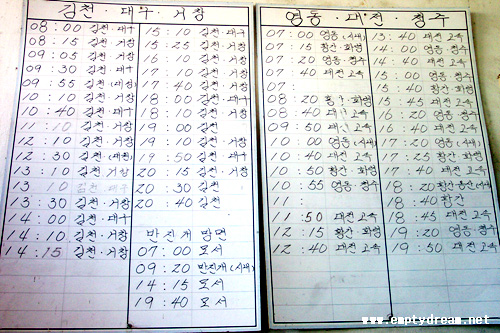 김천 · 대구 · 거창
08 : 00 김천 대구
08 : 15 김천 거창
09 : 05 김천 거창
09 : 30 김천 대구
09 : 55 김천
10 : 10 김천 거창
10 : 40 김천 대구
11 : 10 김천 거창
12 : 10 김천 거창
12 : 30 김천
13 : 10 김천 거창
13 : 10 김천 대구
13 : 30 김천 거창
14 : 00 김천 대구
14 : 10 김천 거창
14 : 15 김천 거창
15 : 10 김천 대구
15 : 25 김천 거창
16 : 10 김천 거창
17 : 10 김천 거창
17 : 40 김천 거창
18 : 00 김천 대구
18 : 10 김천 거창
19 : 00 김천
19 : 10 김천 거창
19 : 50 김천 대구
20 : 15 김천 거창
20 : 30 김천
20 : 40 김천
반진개 방면
07 : 00 모서
09 : 20 반진개 (시내)
14 : 15 모서
19 : 40 모서
영동 · 대전 · 청주
07 : 00 영동 (시내)
07 : 15 황간 화령
07 : 20 영동 청주
07 : 40 대전 고속
07 :
08 : 20 황간 화령
08 : 40 대전 고속
09 : 50 대전 고속
10 : 00 영동 (시내)
10 : 40 대전 고속
10 : 50 황간 화령
10 : 55 영동 청주
11 :
11 : 50 대전 고속
12 : 15 황간 화령
12 : 40 대전 고속
13 : 40 대전 고속
14 : 00 영동 청주
14 : 40 대전 고속
15 : 00 영동 청주
15 : 황간 화령
15 : 45 대전 고속
16 : 20 영동 청주
16 : 40 대전 고속
17 : 20 영동 (시내)
17 : 25 황간 화령
17 : 40 대전 고속
18 : 20 황간
18 : 40 황간
18 : 45 대전 고속
19 : 20 영동 청주
19 : 50 대전 고속
www.emptydream.net